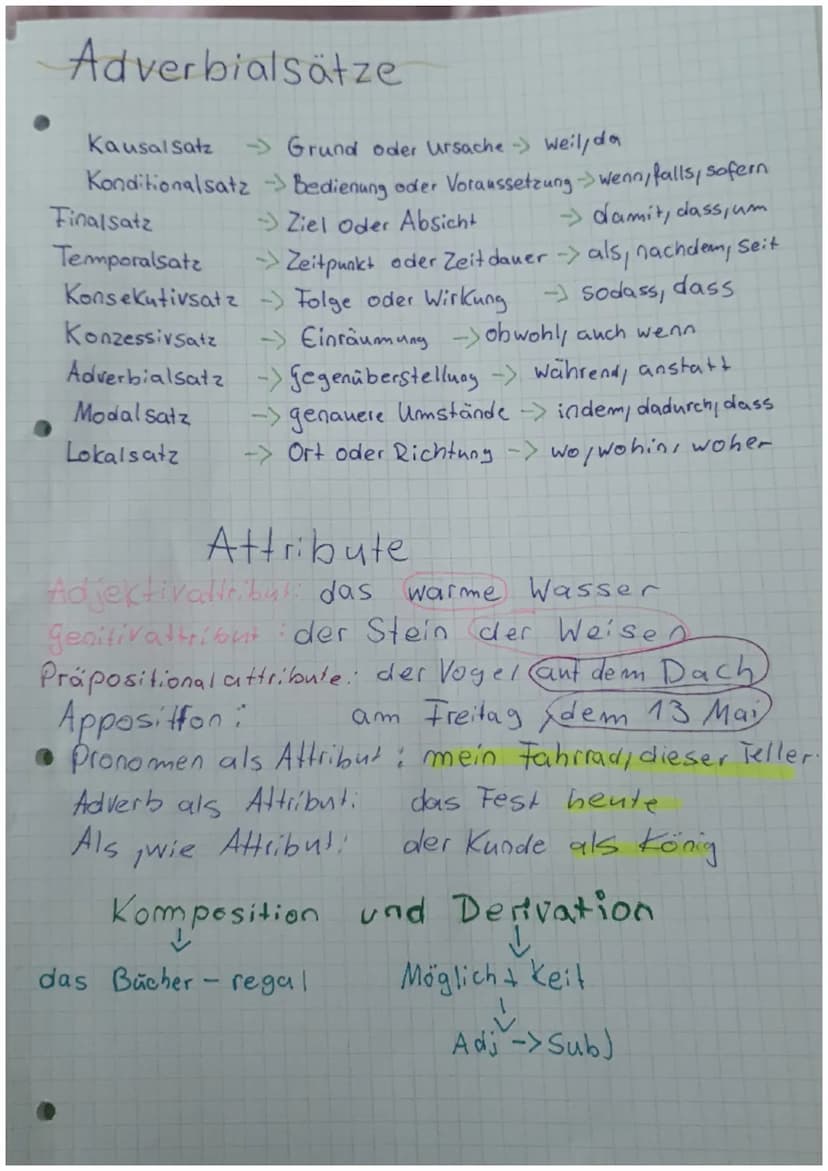 Adverbialsätze
Kausalsatz -> Grund oder Ursache -> weil, da
Konditionalsatz -> Bedienung oder Voraussetzung -> wenn, falls, sofern
Finalsatz -> Ziel oder Absicht -> damit, dass, um
Temporalsatz -> Zeitpunkt oder Zeitdauer -> als, nachdem, seit
Konsekutivsatz -> Folge oder Wirkung -> sodass, dass
Konzessivsatz -> Einräumung -> obwohl, auch wenn
Adverbialsatz -> Gegenüberstellung -> während, anstatt
Modalsatz -> genauere Umstände -> indem, dadurch, dass
Lokalsatz -> Ort oder Richtung -> wo, wohin, woher
Attribute
Adjektivattribut: das warme Wasser
Genitivattribut: der Stein der Weisen
Präpositionalattribute: der Vogel auf dem Dach
Apposition: am Freitag, dem 13 Mai
Pronomen als Attribut: mein Fahrrad, dieser Teller.
Adverb als Attribut: das Fest heute
Als, wie Attribut: der Kunde als König
Komposition und Derivation
↓ ↓
das Bücher - regal Möglich + Keit
↓
Adj -> Subj